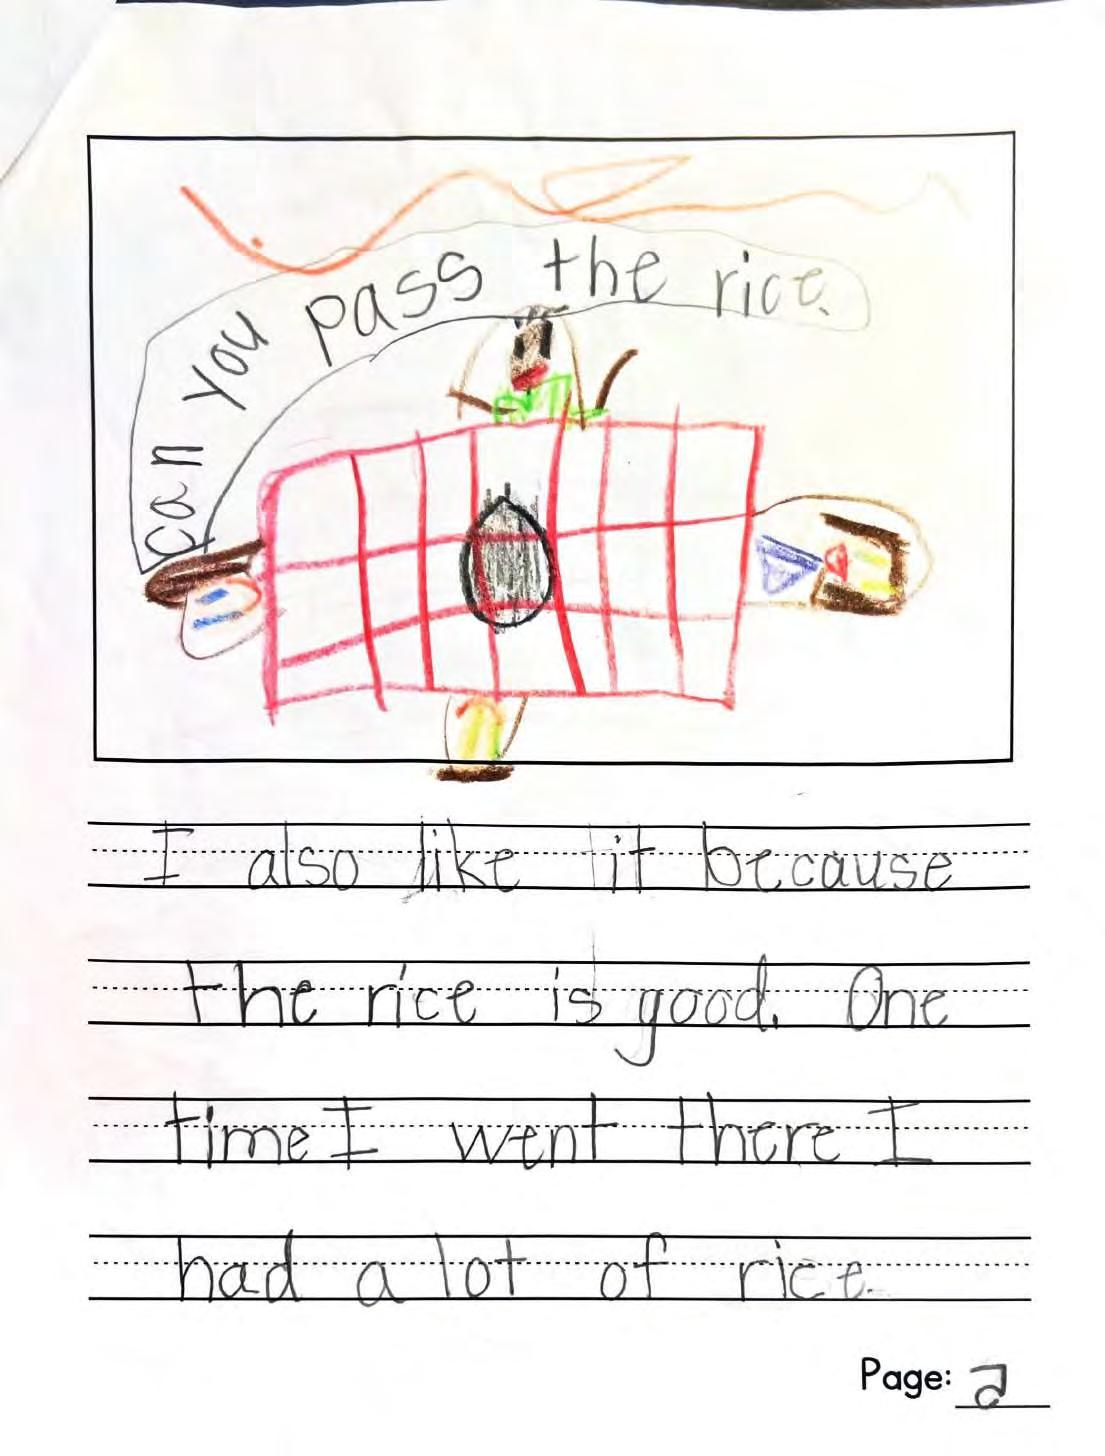 can you pass the rice.
I also like it because
the rice is good. One
time I went there I
had a lot of rice.
Page: 2